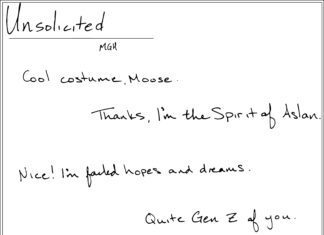 Unsolicited
MGH
Cool costume, Moose.
Thanks, I'm the Spirit of Aslan.
Nice! I'm failed hopes and dreams.
Quite Gen Z of you.